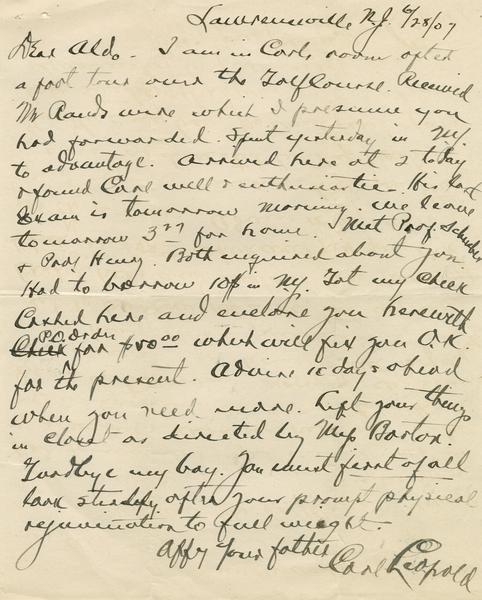 Lawrenceville N.J. 6/28/07
Dear Aldo - I am in Carls room after
a foot tour over the Golf Course. Received
Mr Rands wire which I presume you
had forwarded. Spent yesterday in NY.
to advantage. Arrived here at 2 today
& found Carl well & enthusiastic. His last
Exam is tomorrow morning. We leave
tomorrow 3 27 for home. Met Prof.
& Prof Henry. Both enquired about you.
Had to borrow 10$ in NY. Got my Check
Cashed here and enclose you herewith
P.O. Order
Check for $50 00 which will fix you O.K.
for the present. Advise 10 days ahead
when you need more. Left your things
in closet as directed by Miss Barton.
Goodbye my boy. You must first of all
look steadily after your prompt physical
rejuvenation to full weight.
Affy Your father
Carl Leopold